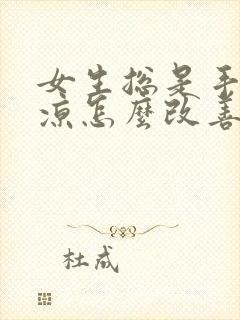 女生总是手
凉怎麼改善
杜成